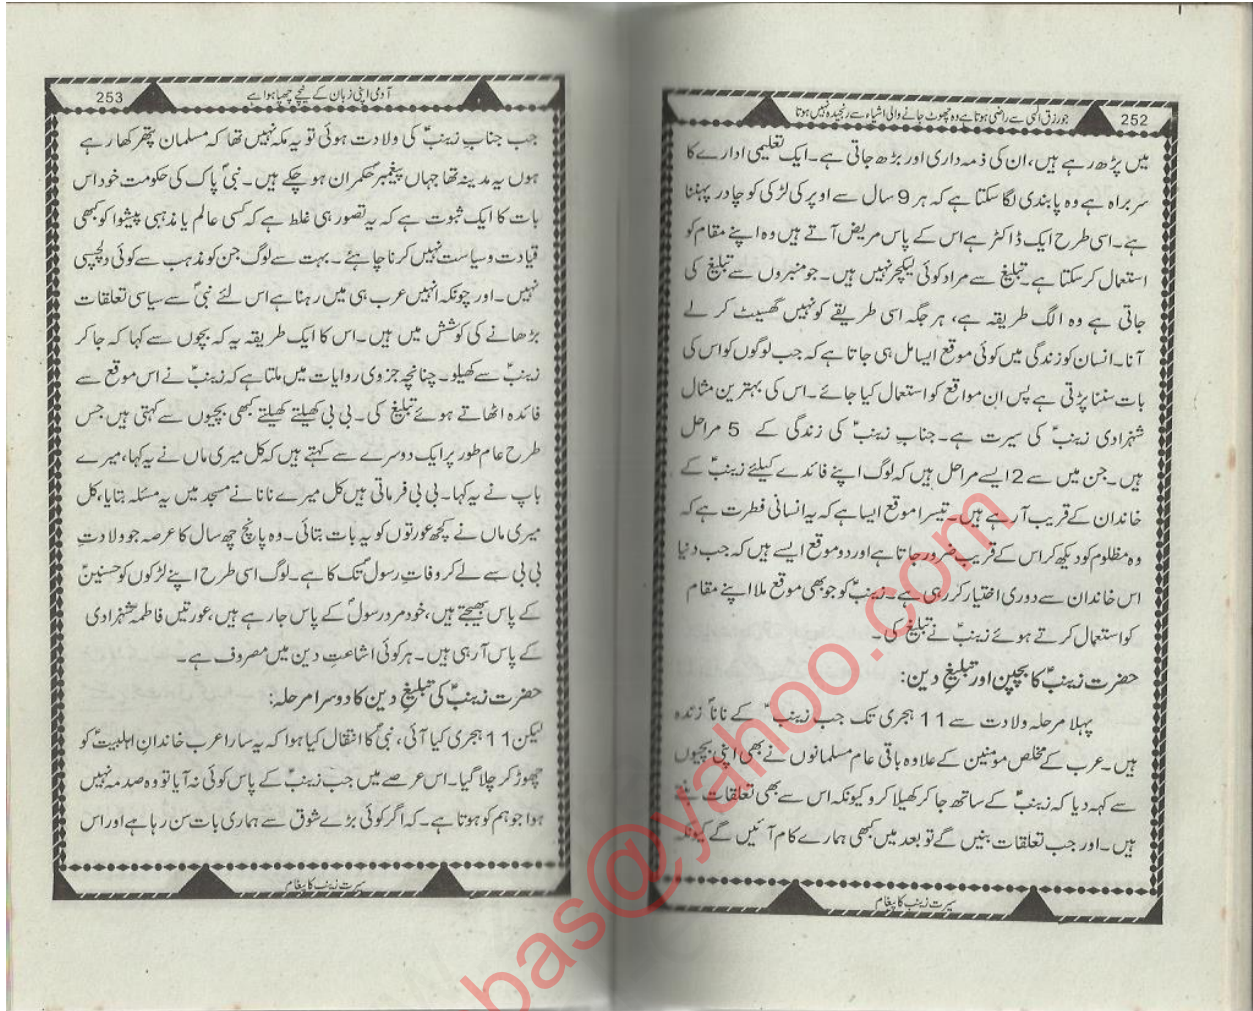 252 جو رزق الٰہی سے راضی ہوتا ہے وہ چھوٹ جانے والی اشیاء سے رنجیدہ نہیں ہوتا
میں پڑھ رہے ہیں، ان کی ذمہ داری اور بڑھ جاتی ہے۔ ایک تعلیمی ادارے کا
سربراہ ہے وہ پابندی لگا سکتا ہے کہ ہر 9 سال سے اوپر کی لڑکی کو چادر پہننا
ہے۔ اسی طرح ایک ڈاکٹر ہے اس کے پاس مریض آتے ہیں وہ اپنے مقام کو
استعمال کر سکتا ہے۔ تبلیغ سے مراد کوئی لیکچر نہیں ہیں۔ جو منبروں سے تبلیغ کی
جاتی ہے وہ الگ طریقہ ہے، ہر جگہ اسی طریقے کو نہیں گھسیٹ کر لے
آنا۔ انسان کو زندگی میں کوئی موقع ایسا مل ہی جاتا ہے کہ جب لوگوں کو اس کی
بات سننا پڑتی ہے پس ان مواقع کو استعمال کیا جائے۔ اس کی بہترین مثال
شہزادی زینبؑ کی سیرت ہے۔ جناب زینبؑ کی زندگی کے 5 مراحل
ہیں۔ جن میں سے 2 ایسے مراحل ہیں کہ لوگ اپنے فائدے کیلئے زینبؑ کے
خاندان کے قریب آ رہے ہیں۔ تیسرا موقع ایسا ہے کہ یہ انسانی فطرت ہے کہ
وہ مظلوم کو دیکھ کر اس کے قریب ضرور جاتا ہے اور دو موقع ایسے ہیں کہ جب دنیا
اس خاندان سے دوری اختیار کر رہی ہے۔ زینبؑ کو جو بھی موقع ملا اپنے مقام
کو استعمال کرتے ہوئے زینبؑ نے تبلیغ کی۔
حضرت زینبؑ کا بچپن اور تبلیغِ دین:
پہلا مرحلہ ولادت سے 11 ہجری تک جب زینبؑ کے ناناؐ زندہ
ہیں۔ عرب کے مخلص مومنین کے علاوہ باقی عام مسلمانوں نے بھی اپنی بچیوں
سے کہہ دیا کہ زینبؑ کے ساتھ جا کر کھیلا کرو کیونکہ اس سے بھی تعلقات بنتے
ہیں۔ اور جب تعلقات بنیں گے تو بعد میں کبھی ہمارے کام آئیں گے کیونکہ
سیرت زینبؑ کا پیغام
253 آدمی اپنی زبان کے نیچے چھپا ہوا ہے
جب جناب زینبؑ کی ولادت ہوئی تو یہ مکہ نہیں تھا کہ مسلمان پتھر کھا رہے
ہوں یہ مدینہ تھا جہاں پیغمبر حکمران ہو چکے ہیں۔ نبیؐ پاک کی حکومت خود اس
بات کا ایک ثبوت ہے کہ یہ تصور ہی غلط ہے کہ کسی عالم یا مذہبی پیشوا کو کبھی
قیادت و سیاست نہیں کرنا چاہئے۔ بہت سے لوگ جن کو مذہب سے کوئی دلچسپی
نہیں۔ اور چونکہ انہیں عرب ہی میں رہنا ہے اس لئے نبیؐ سے سیاسی تعلقات
بڑھانے کی کوشش میں ہیں۔ اس کا ایک طریقہ یہ کہ بچوں سے کہا کہ جا کر
زینبؑ سے کھیلو۔ چنانچہ جزوی روایات میں ملتا ہے کہ زینبؑ نے اس موقع سے
فائدہ اٹھاتے ہوئے تبلیغ کی۔ بی بی کھیلتے کھیلتے کبھی بچیوں سے کہتی ہیں جس
طرح عام طور پر ایک دوسرے سے کہتے ہیں کہ کل میری ماں نے یہ کہا، میرے
باپ نے یہ کہا۔ بی بی فرماتی ہیں کل میرے نانا نے مسجد میں یہ مسئلہ بتایا، کل
میری ماں نے کچھ عورتوں کو یہ بات بتائی۔ وہ پانچ چھ سال کا عرصہ جو ولادتِ
بی بی سے لے کر وفاتِ رسولؐ تک کا ہے۔ لوگ اسی طرح اپنے لڑکوں کو حسنینؑ
کے پاس بھیجتے ہیں، خود مرد رسولؐ کے پاس جا رہے ہیں، عورتیں فاطمہؑ شہزادی
کے پاس آ رہی ہیں۔ ہر کوئی اشاعتِ دین میں مصروف ہے۔
حضرت زینبؑ کی تبلیغِ دین کا دوسرا مرحلہ:
لیکن 11 ہجری کیا آئی، نبیؐ کا انتقال کیا ہوا کہ یہ سارا عرب خاندانِ اہلبیتؑ کو
چھوڑ کر چلا گیا۔ اس عرصے میں جب زینبؑ کے پاس کوئی نہ آیا تو وہ صدمہ نہیں
ہوا جو ہم کو ہوتا ہے۔ کہ اگر کوئی بڑے شوق سے ہماری بات سن رہا ہے اور اس
سیرت زینبؑ کا پیغام
bas@yahoo.com